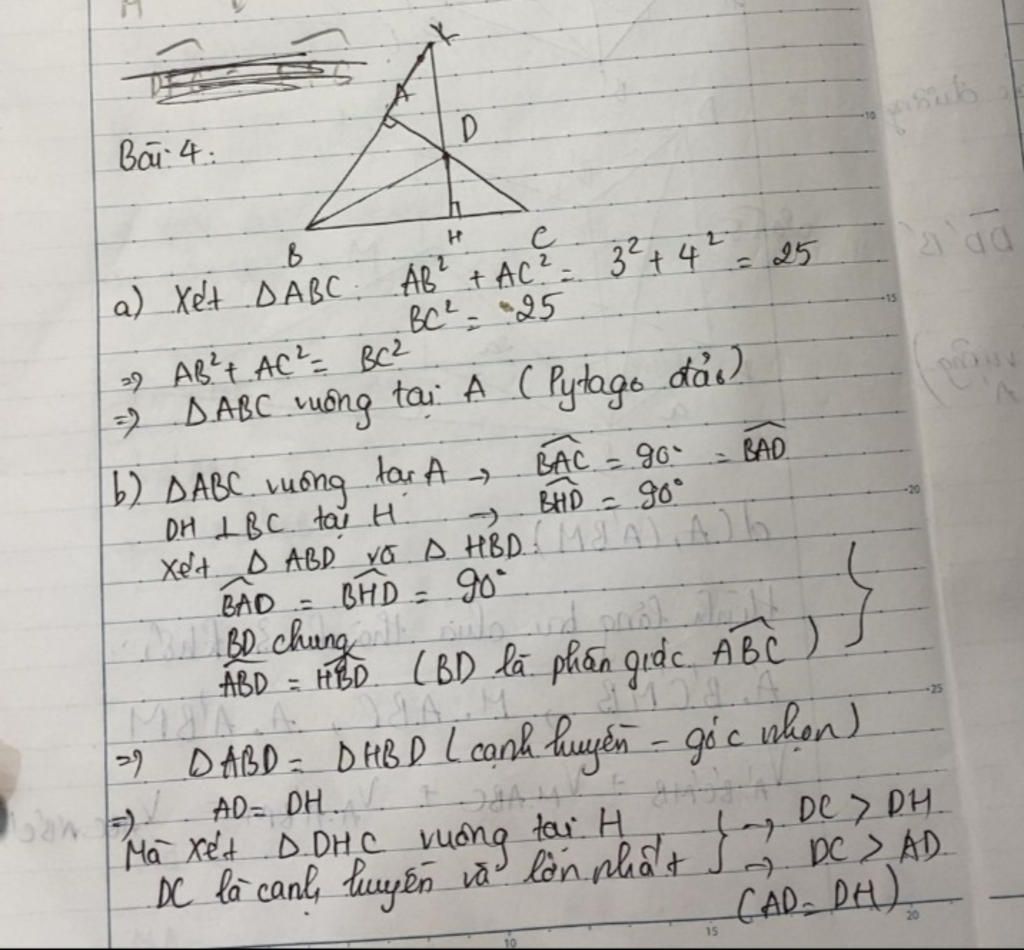 K
A
D
Bài 4:
B
H
C
a) Xét ΔABC: AB² + AC² = 3² + 4² = 25
BC² = 25
=> AB² + AC² = BC²
=> ΔABC vuông tại A (Pytago đảo)
b) ΔABC vuông tại A → \widehat{BAC} = 90° = \widehat{BAD}
DH ⊥ BC tại H → \widehat{BHD} = 90°
Xét Δ ABD và Δ HBD:
\widehat{BAD} = \widehat{BHD} = 90°
BD chung
\widehat{ABD} = \widehat{HBD} (BD là phân giác \widehat{ABC}) }
=> ΔABD = ΔHBD (cạnh huyền – góc nhọn)
=> AD = DH
Mà xét Δ DHC vuông tại H, } → DC > DH
DC là cạnh huyền và lớn nhất → DC > AD
(AD = DH)